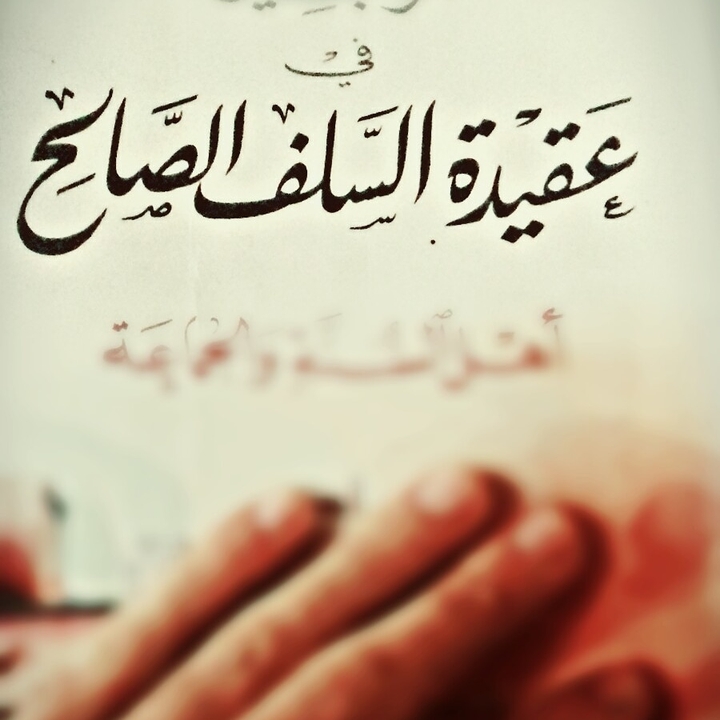 في
عقيدة السلف الصالح
أهل السنة والجماعة